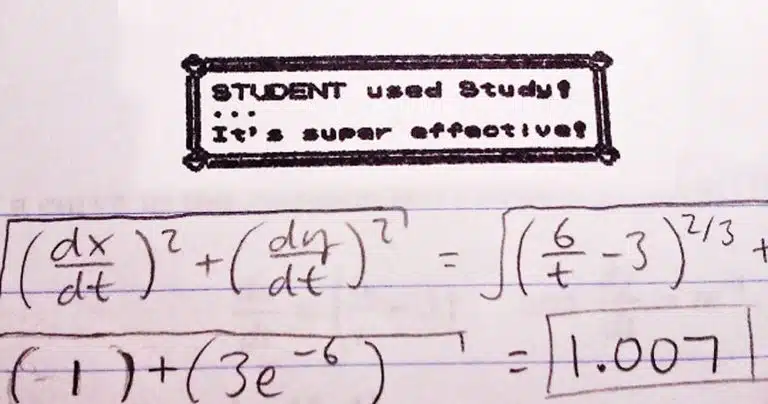 STUDENT used Study!
...
It's super effective!
√(dx/dt)² + (dy/dt)² = √(6/t - 3)^2/3 +
(1) + (3e^-6) = 1.007